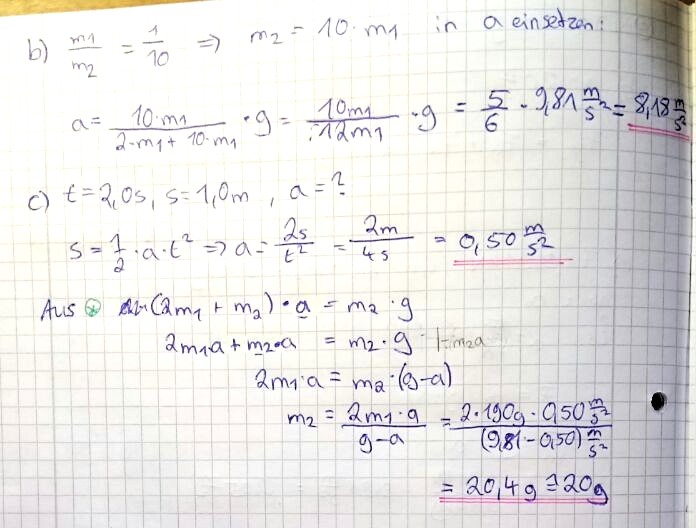 b) m1/m2 = 1/10 ⇒ m2 = 10·m1 in a einsetzen:
a = 10·m1/(2·m1 + 10·m1) · g = 10m1/12m1 · g = 5/6 · 9,81 m/s² = 8,18 m/s²
c) t = 2,0s, s = 1,0m, a = ?
s = 1/2 · a · t² ⇒ a = 2s/t² = 2m/4s = 0,50 m/s²
Aus ⊛ (2m1 + m2) · a = m2 · g
2m1a + m2·a = m2 · g |-m2a
2m1·a = m2·(g-a)
m2 = 2m1·a/(g-a) = 2·190g·0,50 m/s²/(9,81-0,50) m/s²
= 20,4g ≅ 20g